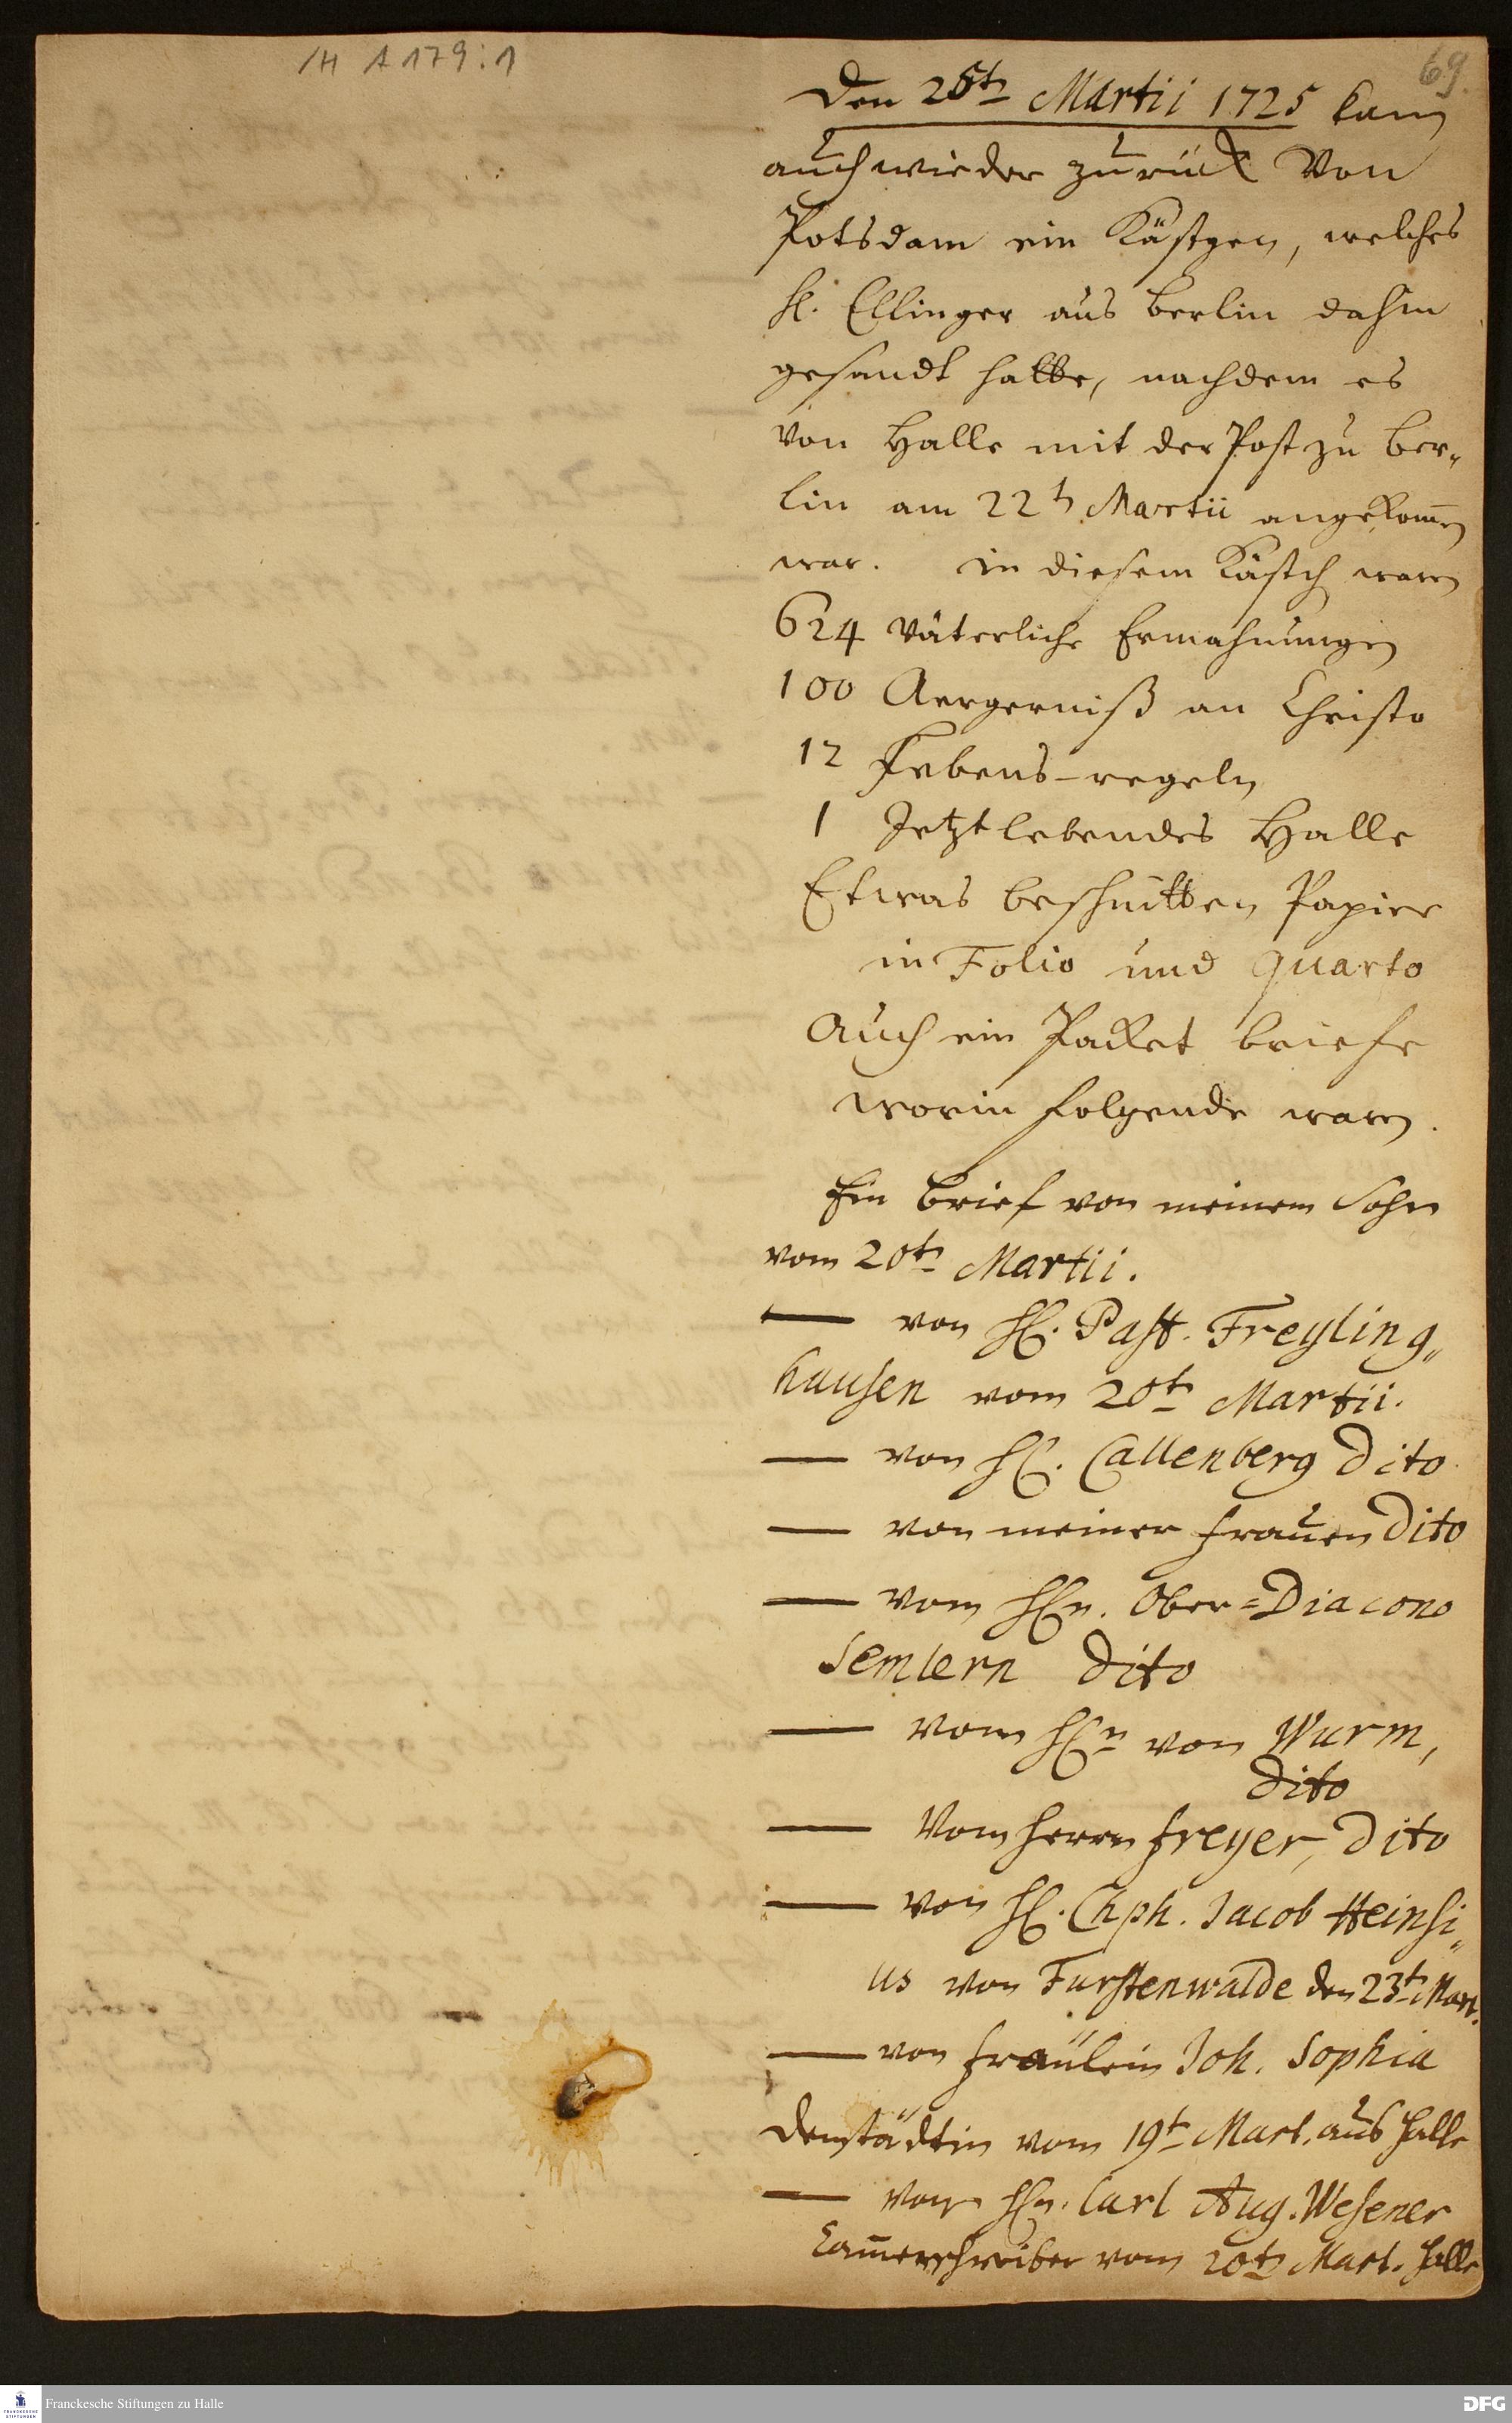 /H A 179:1
69.
Den 25t Martii 1725 kam
auch wieder zurück von
Potsdam ein Kästgen, welches
H. Ellinger aus Berlin dahin
gesandt hatte, nachdem es
von Halle mit der Post zu Ber„
lin am 22t Martii angekom̅en
war. in diesem Kästch waren
624 Väterliche Ermahnungen
100 Aergerniß an Christo
12 Lebens-regeln
1 Jetztlebendes Halle
Etwas beschnitten Papier
in Folio und Quarto
Auch ein Packet briefe
worin folgende waren.
Ein Brief von meinem Sohn
vom 20t Martii.
— von H. Past. Freyling„
hausen vom 20t Martii.
— von H. Callenberg Dito
— von meiner Frauen Dito
— vom Hn. Ober=Diacono
Semlern Dito
— vom Hn von Wurm,
Dito
— Vom Herrn Freyer, Dito
— von H. Chph. Jacob Heinsi„
us von Furstenwalde den 23t Mart.
— von Fräulein Joh. Sophia
Denstädtin vom 19t Mart. aus Halle
— von Hn. Carl Aug. Wesener
Cam̅erschreiber vom 20t Mart. Halle
Franckesche Stiftungen zu Halle
DFG